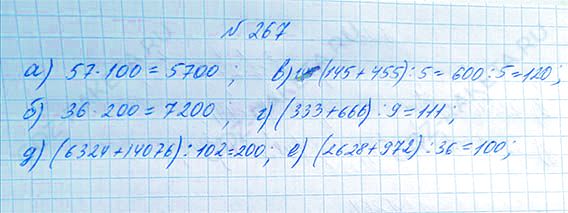 № 267
а) 57·100=5700; в) (145+455):5=600:5=120;
б) 36·200=7200; г) (333+666):9=111;
д) (6324+14076):102=200; е) (2628+972):36=100;